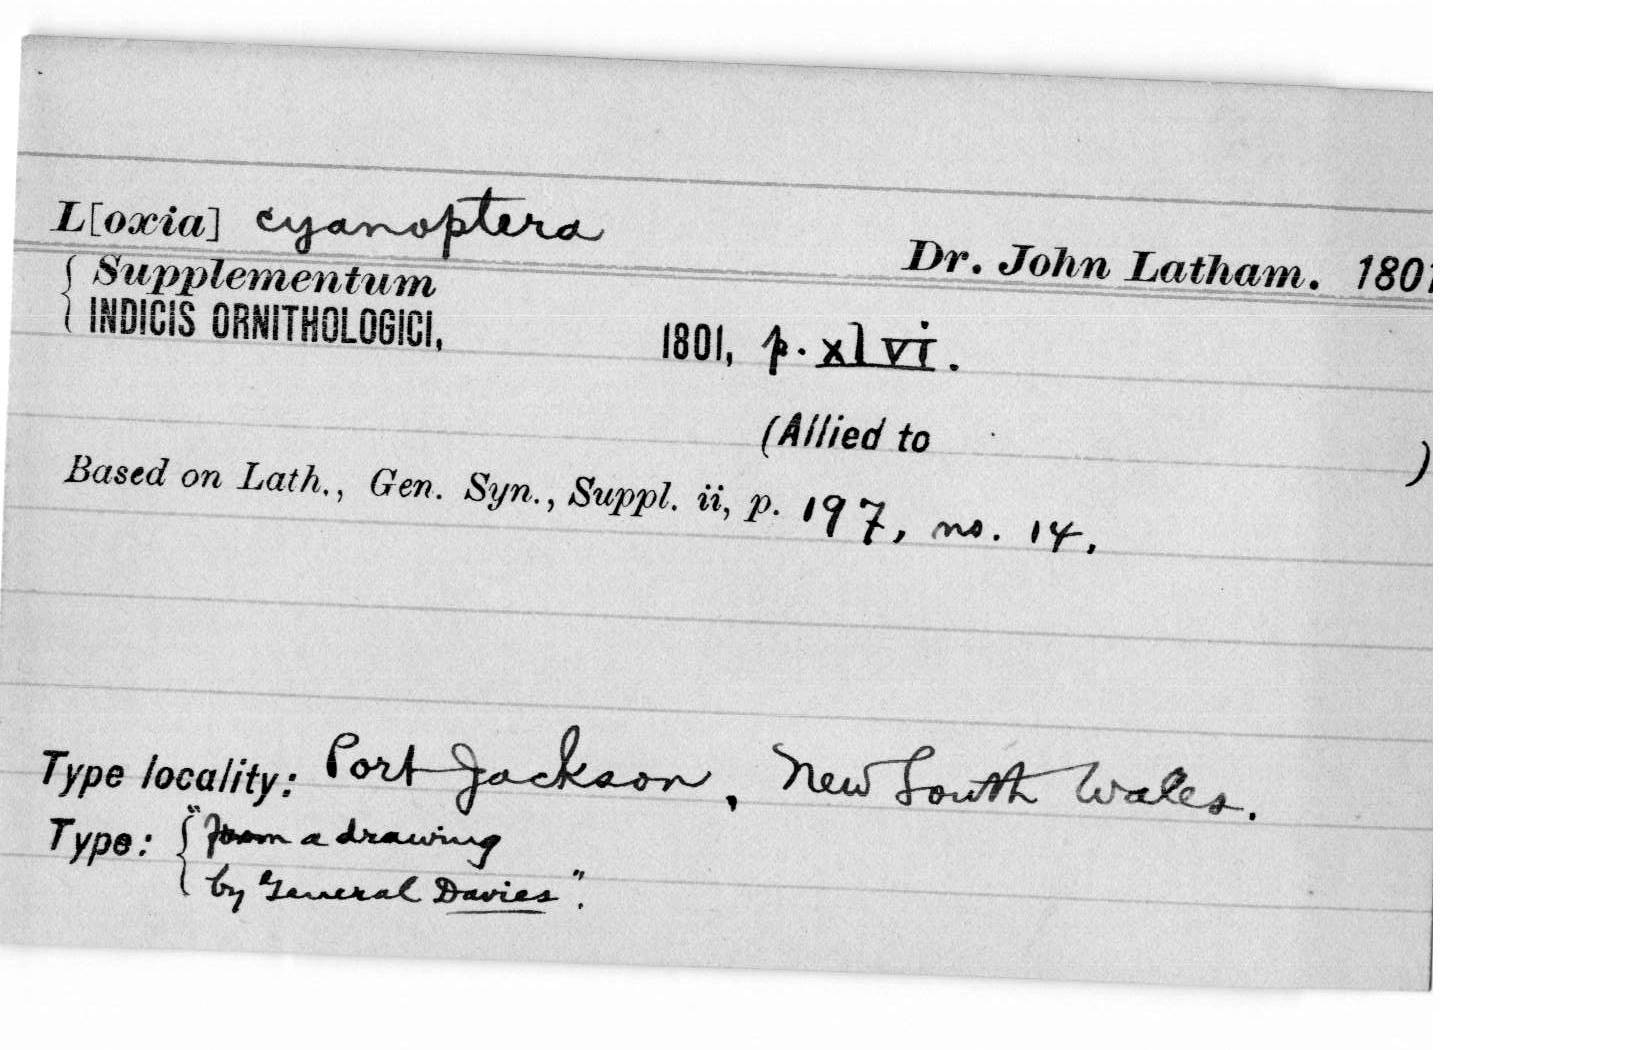 L[oxia] cyanoptera
Dr. John Latham. 1801
{ Supplementum
INDICIS ORNITHOLOGICI, 1801, p. xlvi.
(Allied to )
Based on Lath., Gen. Syn., Suppl. ii, p. 197, no. 14.
Type locality: Port Jackson, New South Wales.
Type: { "from a drawing
by "General Davies".